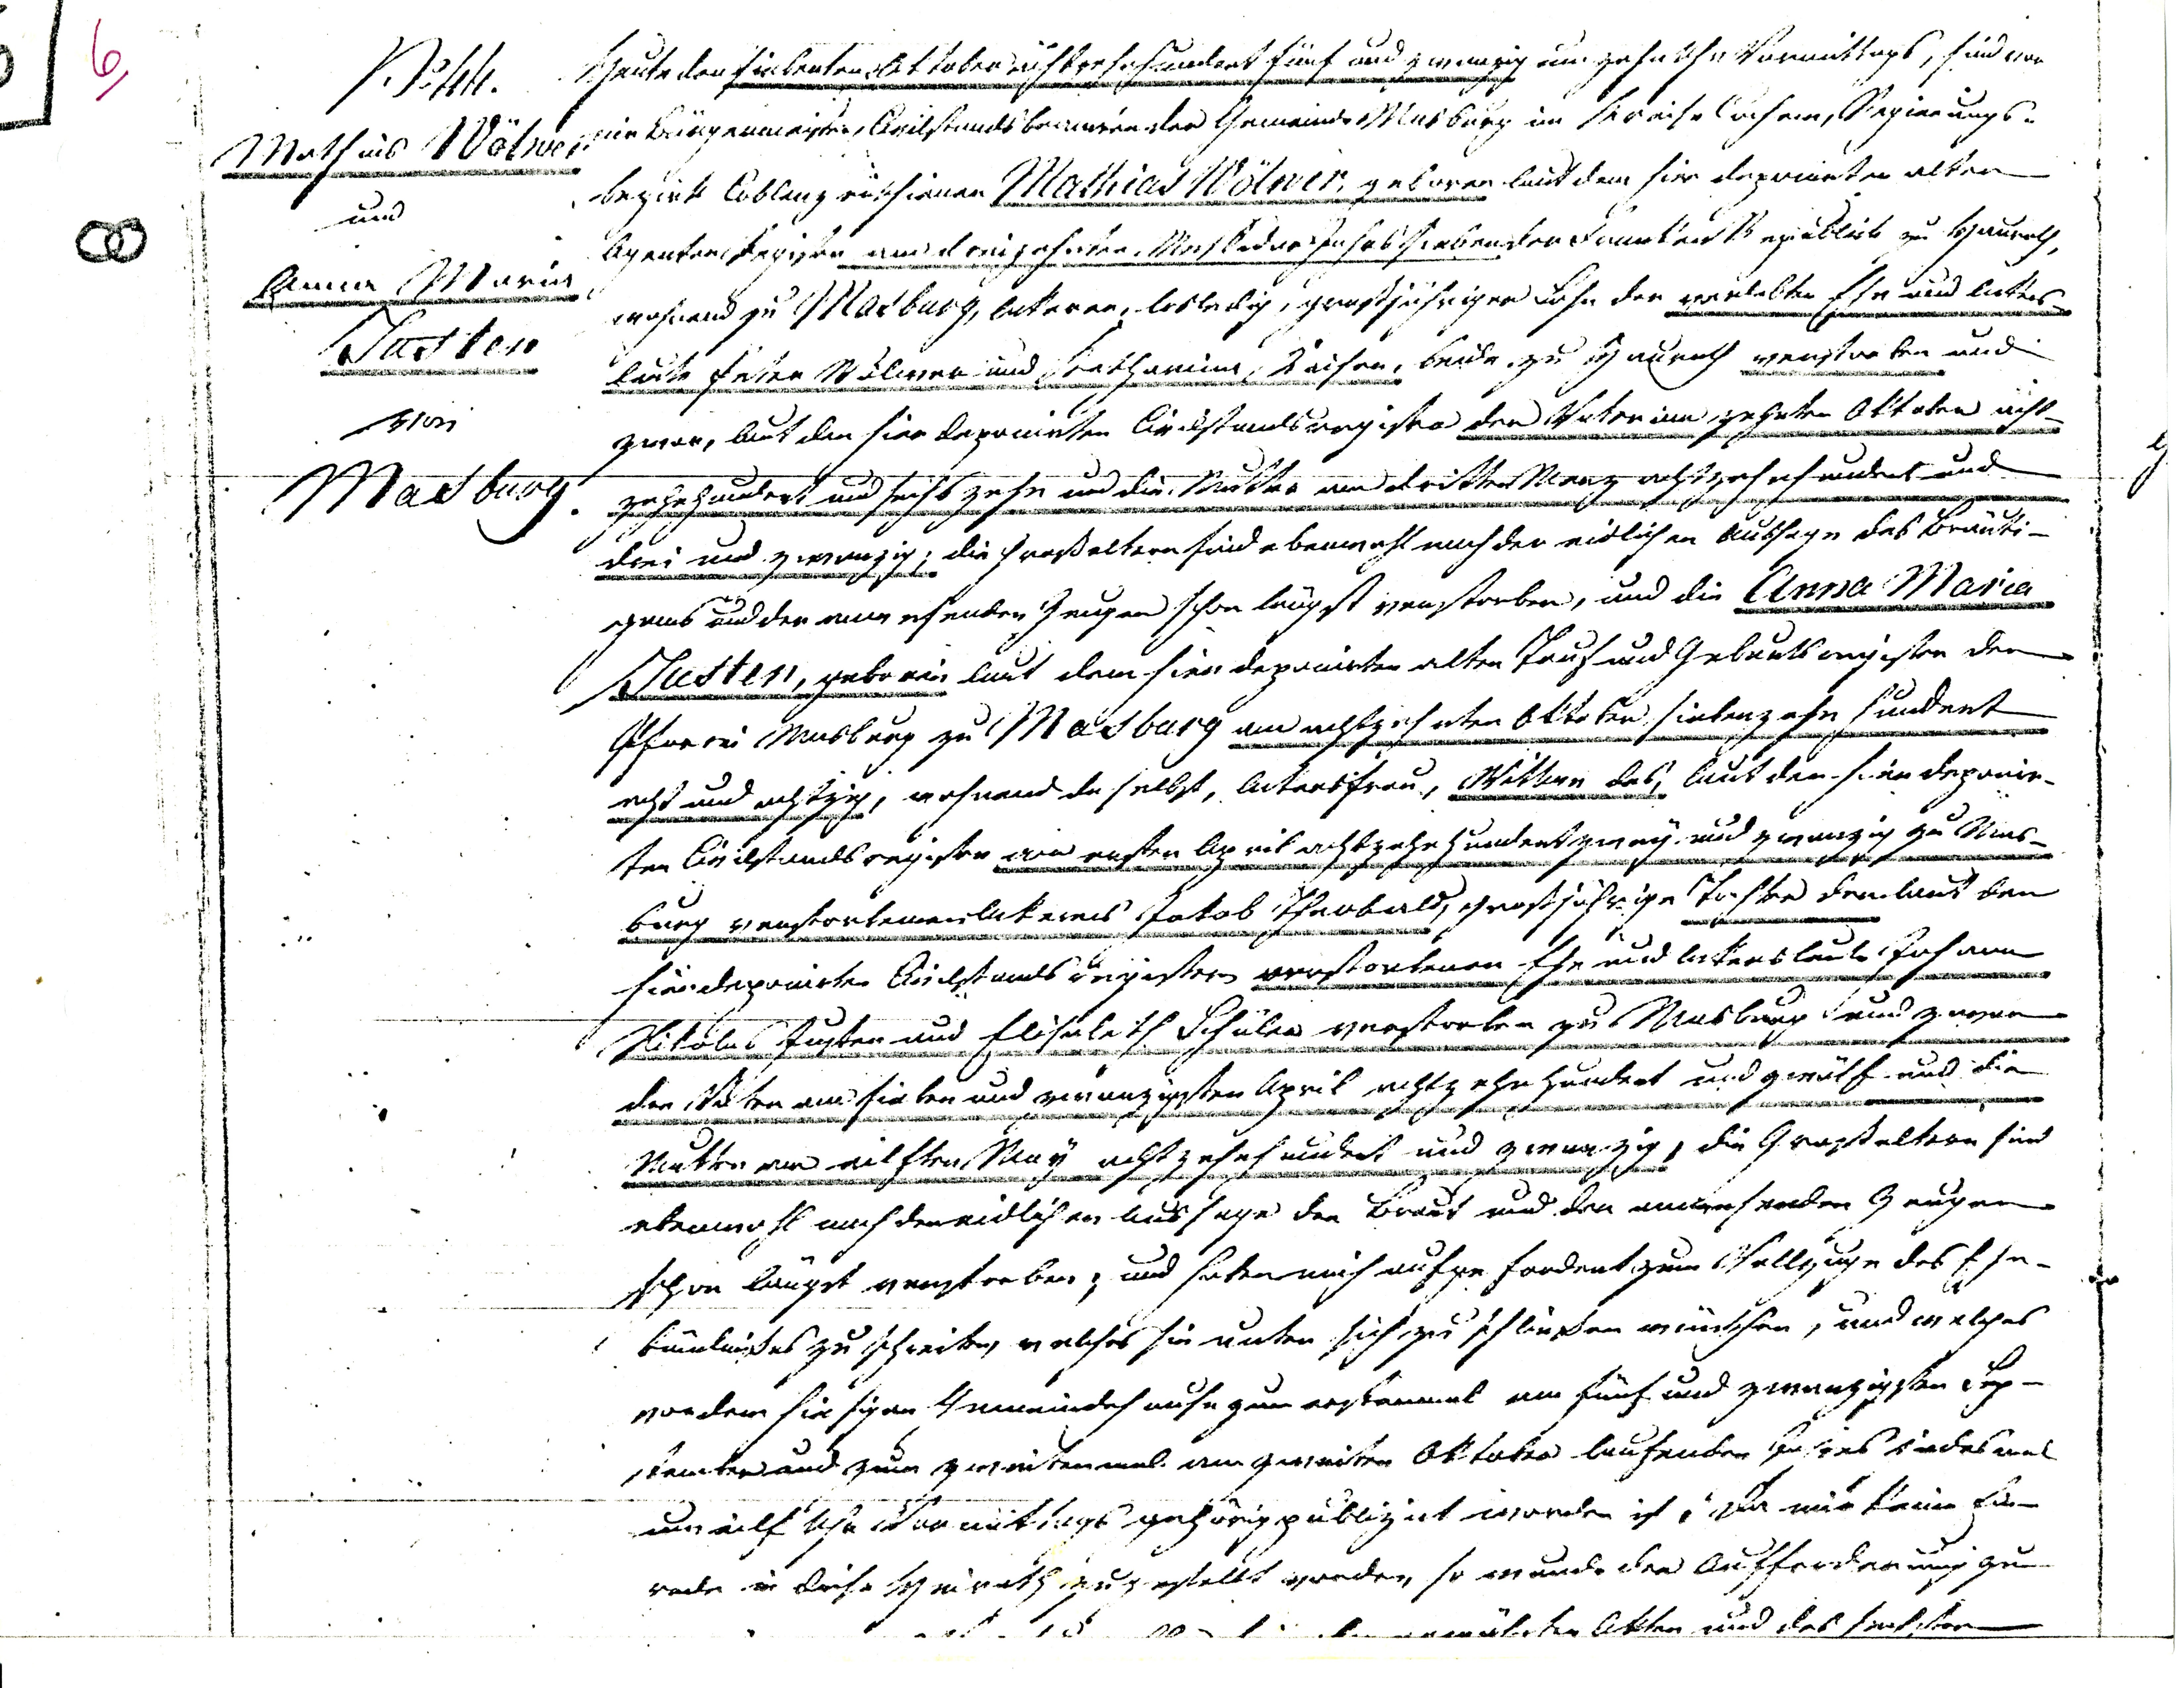 6,
No 44.
Mathias Wölwer
und
Anna Maria
Justen
von
Masburg.
Heute den siebenten Oktober achtzehnhundert fünf und zwanzig um zehn Uhr Vormittags, sind vor
mir Bürgermeister, Civilstandsbeamten der Gemeinde Masburg im Kreise Cochem, Regierungs-
bezirk Coblenz erschienen Mathias Wölwer, geboren laut dem hier deponirten alten
Agenten Register am dreizehnten Messidor Jahres sieben der Franken Republick zu Hauroth,
wohnend zu Masburg, Ackerer, losledig, großjähriger Sohn der verlebten Ehe und Ackers-
leute Peter Wölwer und Katharina, beide zu Hauroth verstorben und
zwar, laut den hier deponirten Civilstandsregister der Vater am zehnten Oktober acht-
zehnhundert und sechszehn und die Mutter am dritten Merz achtzehnhundert und
drei und zwanzig; die Großeltern sind ebenwohl nach der eidlichen Aussage des Bräuti-
gams und der anwesenden Zeugen schon längst verstorben, und die Anna Maria
Justen, geboren laut dem hier deponirten alten Tauf und Geburtsregister der
Pfarrei Masburg zu Masburg am achtzehnten Oktober siebenzehn hundert
acht und achtzig, wohnend daselbst, Ackersfrau, Wittwe des, laut den hier deponir-
ten Civilstandsregister am ersten April achtzehnhundert zwey und zwanzig zu Mas-
burg verstorbenen Ackerers Jakob Theobald, großjährige Tochter der laut den
hier deponirten Civilstandsregistern verstorbenen Ehe und Ackersleute Johann
Nikolas Justen und Elisabeth Schüler verstorben zu Masburg und zwar
der Vater am sieben und zwanzigsten April achtzehnhundert und zwölf und die
Mutter am eilften May achtzehnhundert und zwanzig, die Großeltern sind
ebenwohl nach der eidlichen Aussage der Braut und der anwesenden Zeugen
schon längst verstorben; und haben mich aufgefordert zum Vollzuge des Ehe-
bündnißes zu schreiten, welches sie unter sich zu schließen wünschen, und welches
vor dem hiesigen Gemeindehause zum erstenmal am fünf und zwanzigsten Sep-
tember und zum zweitenmal am zweiten Oktober laufenden Jahres jedesmal
um eilf Uhr Vormittags gehörig publizirt worden ist; Da mir keine Ein-
rede in diese Heirath zugestellt worden, so wurde der Aufforderung zu
Akten und des sechsten